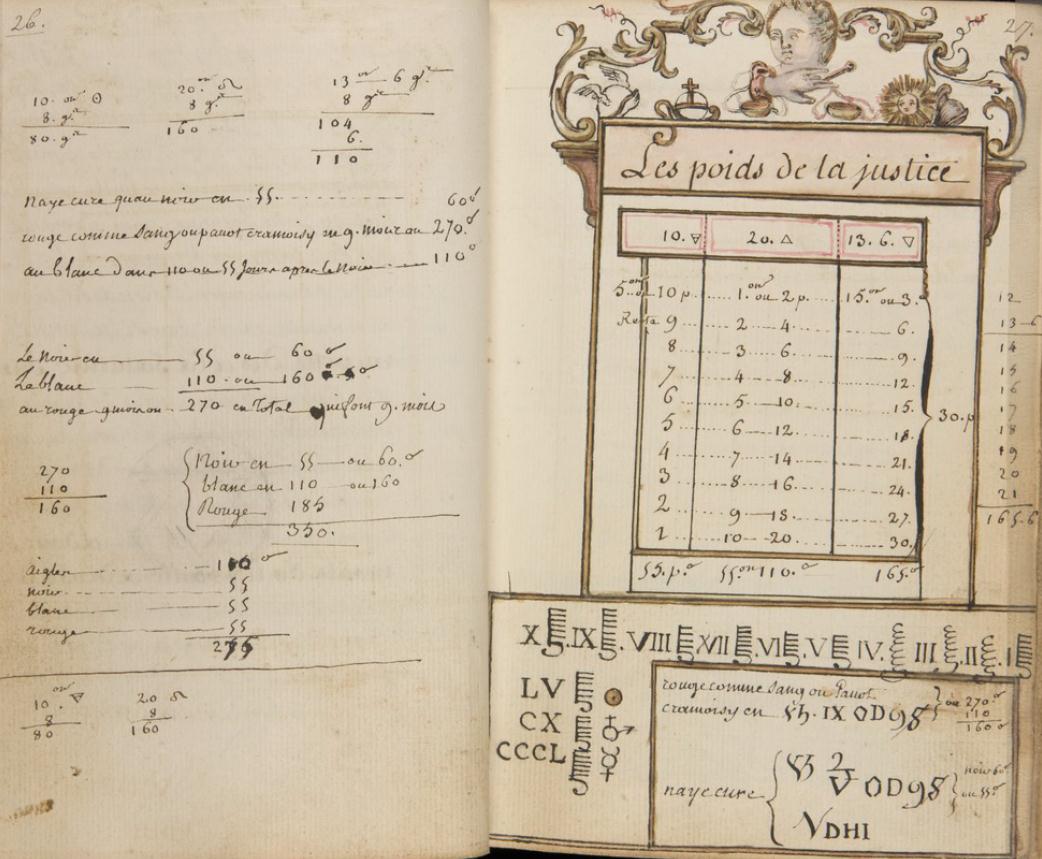 26.
10. on ☉
8. g.
80. g.
20. on
8 g.
160
13 on 6 g.
8 g.
104
6.
110
naye cure quau noir en 55. 60
rouge comme sang ou pauot cramoisy en 9. mois ou 270.
au blanc dans 110 ou 55 jours apres le noir 110
Le noir en 55 ou 60
Le blanc 110. ou 160
au rouge 9 mois ou 270 en Total qui font 9. mois
270
110
160
Noir en 55 ou 60.
blanc en 110 ou 160
Rouge 185
350.
aigles
noir 55
blanc 55
rouge 55
10. on 🜃
8
80
20
8
160
27.
Les poids de la justice
10. 🜃 20. △ 13. 6. ▽
5. on 10 p. 1. on ou 2 p. 15. on ou 3.
Reste 9 2 4 6.
8 3 6 9.
7 4 8 12.
6 5 10 15.
5 6 12 18.
4 7 14 21.
3 8 16 24.
2 9 18. 27.
1 10 20. 30.
30. p
55. p. 55. on 110. 165.
12
13 6
14
15
16
17
18
19
20
21
165.6
X IX VIII VII VI V IV. III II. I
LV
CX ♂
CCCL ☿
rouge comme sang ou Pauot
cramoisy en IX OD98 ou 270.
110
160
naye cure OD98 noir 60
ou 55.
VDHI